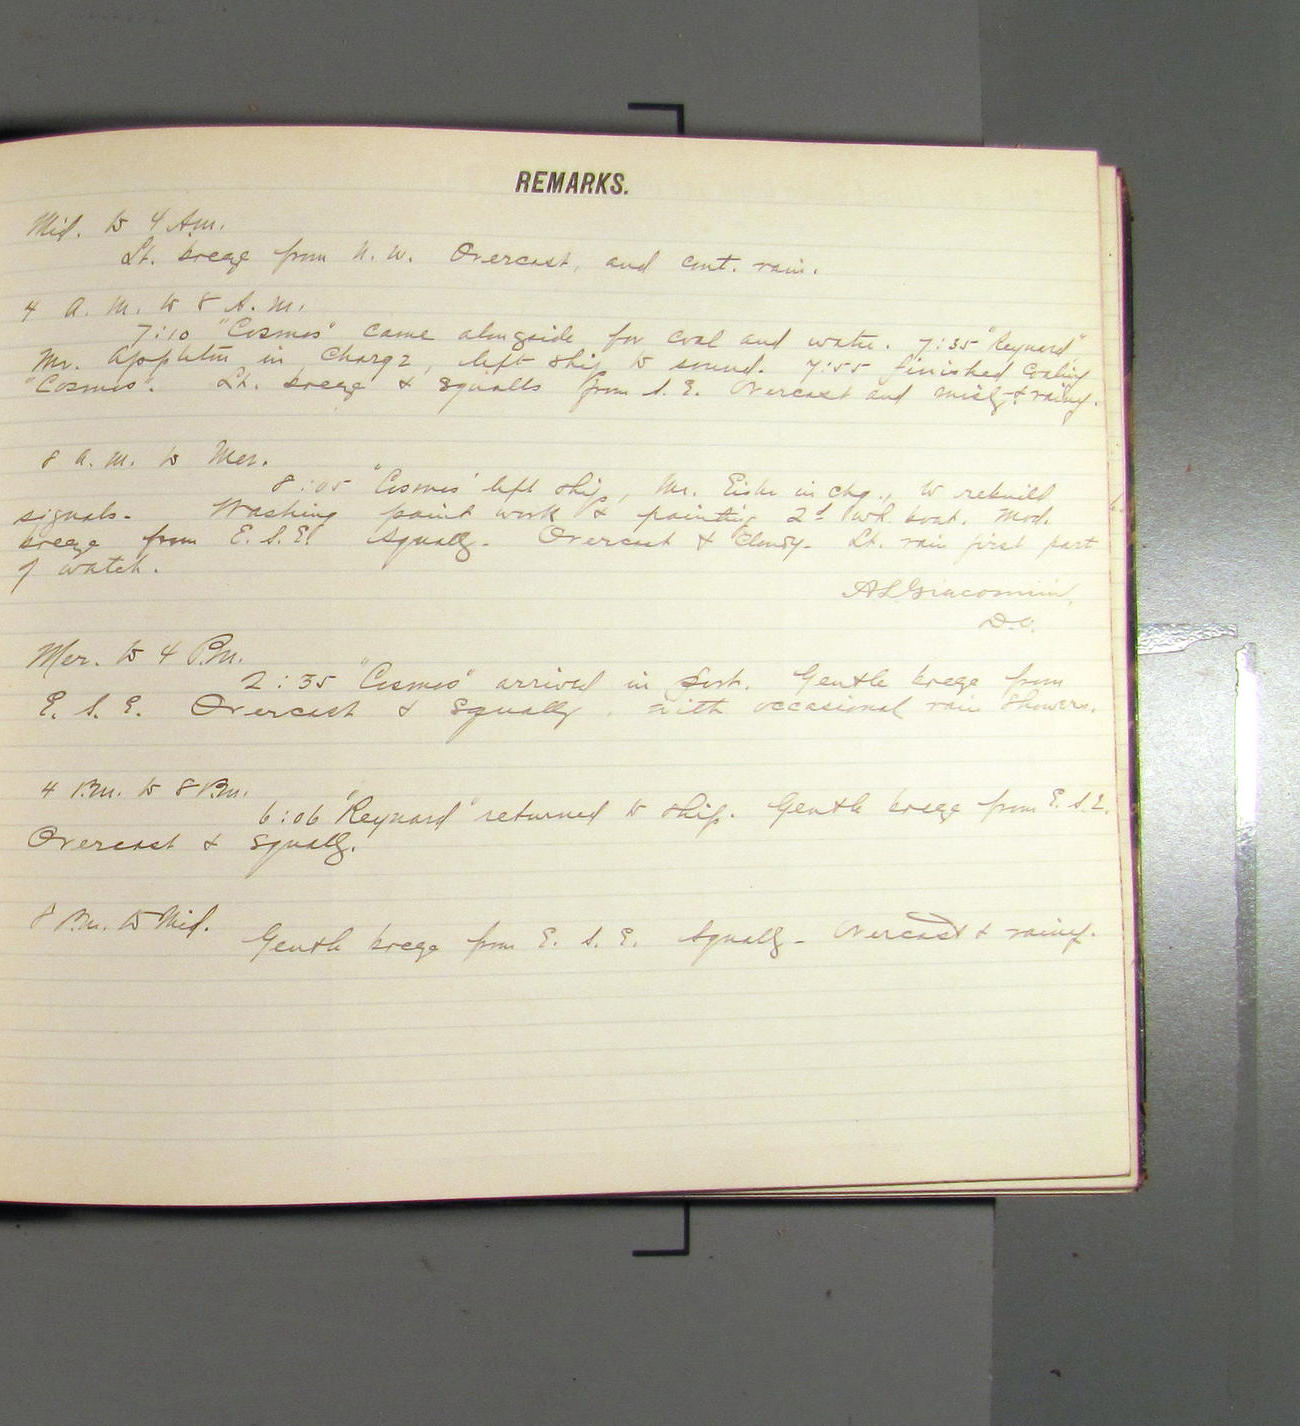 REMARKS.
Mid. to 4 A.m.
Lt. breeze from N. W. Overcast, and cont. rain.
4 a. m. to 8 A. m.
7:10 "Cosmos" came alongside for coal and water. 7:35 "Reynard"
Mr. Appleton in charge, left ship to sound. 7:55 finished coaling
"Cosmos". Lt. breeze & squalls from S. E. Overcast and misty & rainy.
8 a. m. to Mer.
8:05 "Cosmos" left ship, Mr. in chg., to rebuild
signals. Washing paint work & painting 2d wh. boat. Mod.
breeze from E. S. E. Squally. Overcast & Cloudy. Lt. rain first part
of watch.
A L Giacomini,
D.O.
Mer. to 4 P.m.
2:35 "Cosmos" arrived in port. Gentle breeze from
E. S. E. Overcast & squally. with occasional rain showers.
4 P.m. to 8 P.m.
6:06 "Reynard" returned to ship. Gentle breeze from E. S. E.
Overcast & squally.
8 P.m. to Mid.
Gentle breeze from E. S. E. Squally - Overcast & rainy.